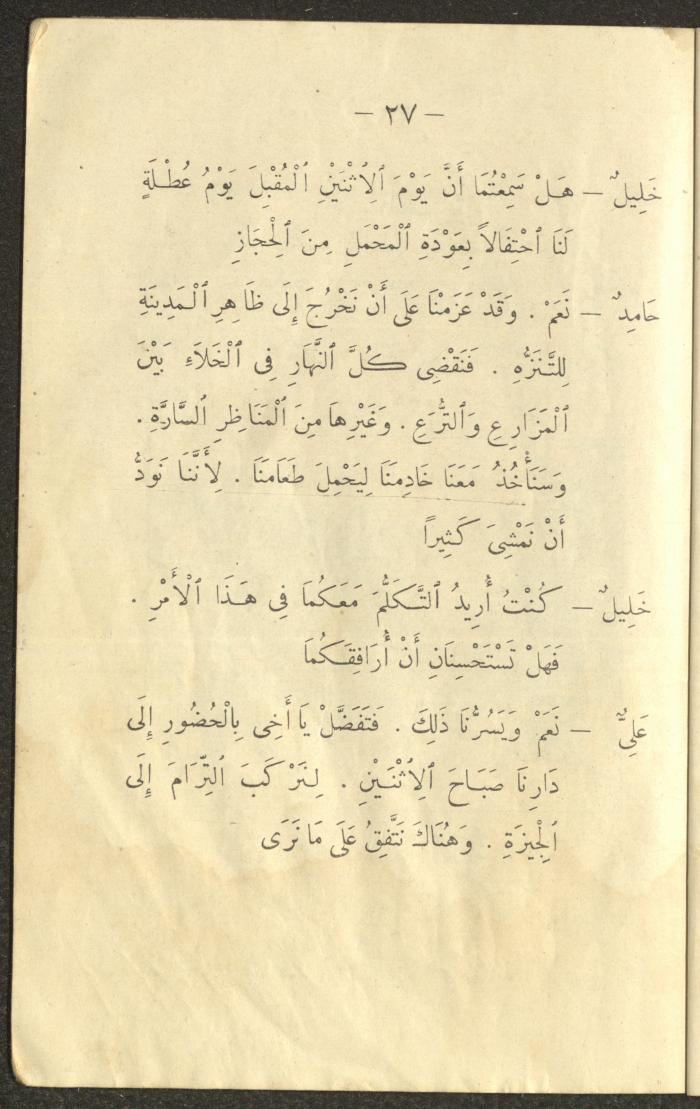 — ٢٧ —
خَلِيلٌ — هَلْ سَمِعْتُمَا أَنَّ يَوْمَ ٱلِٱثْنَيْنِ ٱلْمُقْبِلَ يَوْمُ عُطْلَةٍ
لَنَا ٱحْتِفَالاً بِعَوْدَةِ ٱلْمَحْمَلِ مِنَ ٱلْحِجَازِ
حَامِدٌ — نَعَمْ . وَقَدْ عَزَمْنَا عَلَى أَنْ نَخْرُجَ إِلَى ظَاهِرِ ٱلْمَدِينَةِ
لِلتَّنَزُّهِ . فَنَقْضِى كُلَّ ٱلنَّهَارِ فِى ٱلْخَلَاءِ بَيْنَ
ٱلْمَزَارِعِ وَٱلتُّرَعِ . وَغَيْرِهَا مِنَ ٱلْمَنَاظِرِ ٱلسَّارَّةِ .
وَسَنَأْخُذُ مَعَنَا خَادِمَنَا لِيَحْمِلَ طَعَامَنَا . لِأَنَّنَا نَوَدُّ
أَنْ نَمْشِىَ كَثِيرًا
خَلِيلٌ — كُنْتُ أُرِيدُ ٱلتَّكَلُّمَ مَعَكُمَا فِى هَذَا ٱلْأَمْرِ .
فَهَلْ تَسْتَحْسِنَانِ أَنْ أُرَافِقَكُمَا
عَلِىٌّ — نَعَمْ وَيَسُرُّنَا ذَلِكَ . فَتَفَضَّلْ يَا أَخِى بِالْحُضُورِ إِلَى
دَارِنَا صَبَاحَ ٱلِٱثْنَيْنِ . لِنَرْكَبَ ٱلتِّرَامَ إِلَى
ٱلْجِيزَةِ . وَهُنَاكَ نَتَّفِقُ عَلَى مَا نَرَى